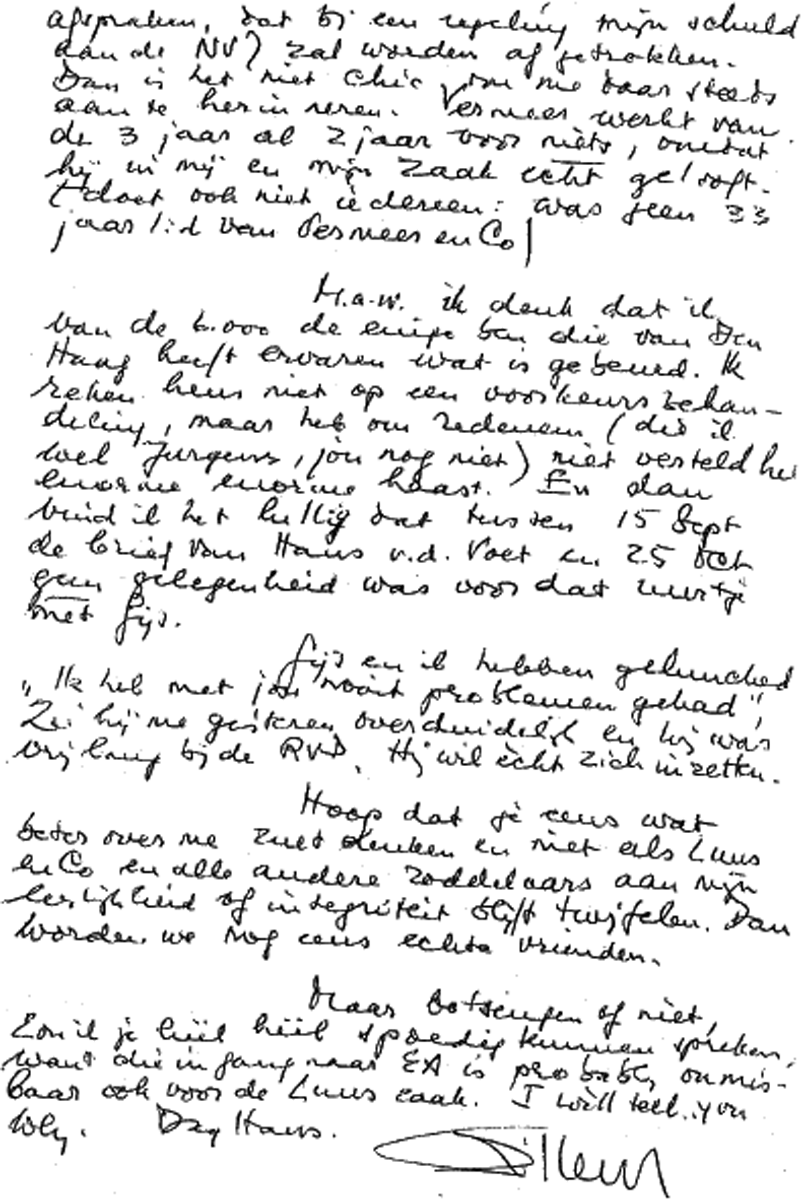 afspraken, dat bij een regeling mijn schuld
aan de NV) zal worden afgetrokken.
Dan is het niet chic om me daar steeds
aan te herinneren. Vermeer werkt van
de 3 jaar al 2 jaar voor niets, omdat
hij in mij en mijn zaak echt gelooft.
doet ook niet iedereen: was geen 33
jaar lid van Vermeer en Co!
M.a.w. ik denk dat ik
van de 6.000 de enige ben die van Den
Haag heeft ervaren wat is gebeurd. Ik
reken heus niet op een voorkeursbehan-
deling, maar heb om redenen (die ik
wel Jurgens, jou nog niet) niet verteld
enorme enorme haast. En dan
vind ik het lullig dat tussen 15 Sept
de brief van Hans v.d. Voet en 25 Oct
geen gelegenheid was voor dat uurtje
met Gijs.
Gijs en ik hebben geluncht
"Ik heb met jou nooit problemen gehad",
Zei hij me gisteren overduidelijk en hij was
vrij lang bij de RVD. Hij wil echt zich inzetten.
Hoop dat je eens wat
beter over me zult denken en niet als Luns
en Co en alle andere roddelaars aan mijn
eerlijkheid of integriteit blijft twijfelen. Dan
worden we nog eens echte vrienden.
Maar botsingen of niet,
Zou ik je héél héél spoedig kunnen spreken,
want die ingang naar EA is probably onmis-
baar ook voor de Luns zaak. I will tell you
why. Dag Hans.
Willem